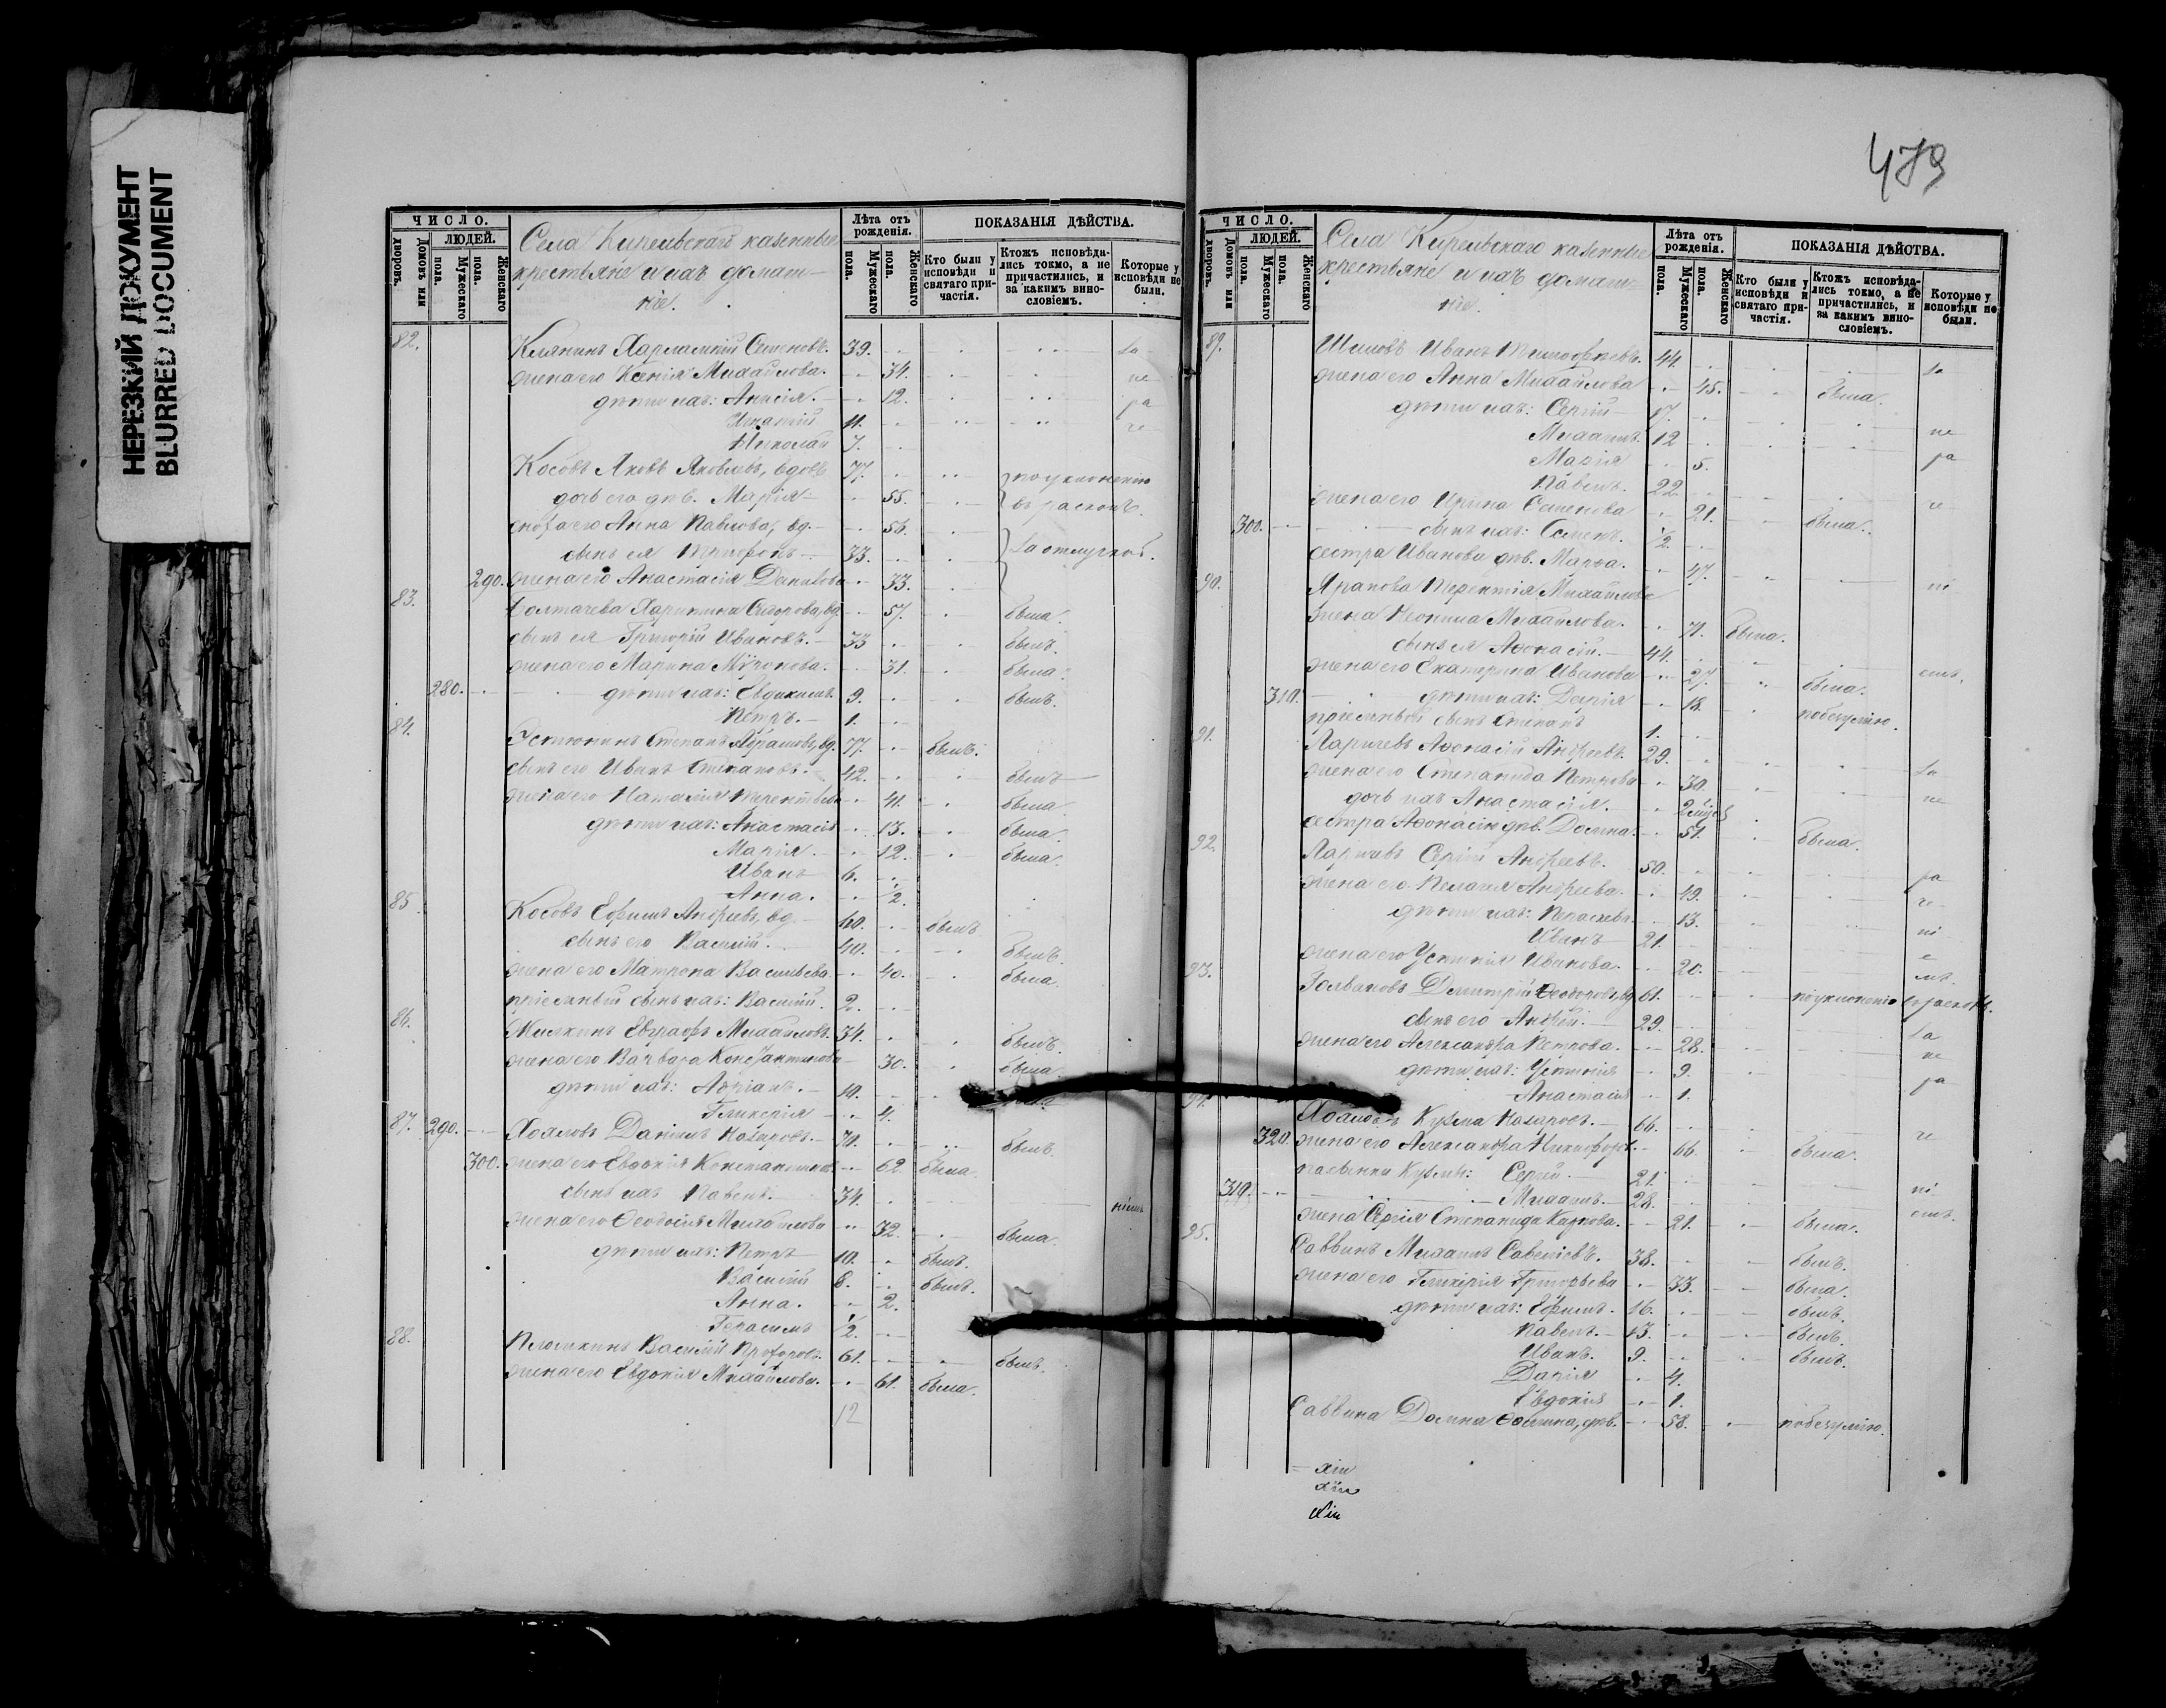 НЕРЕЗКИЙ ДОКУМЕНТ
BLURRED DOCUMENT
ЧИСЛО.
Домовъ или дворовъ.
ЛЮДЕЙ.
Мужескаго пола.
Женскаго пола.
Села Киреевскаго казенные
крестьяне и ихъ домаш-
ніе.
Лѣта отъ рожденія.
Мужескаго пола.
Женскаго пола.
ПОКАЗАНІЯ ДѢЙСТВА.
Кто были у исповѣди и святаго причастія.
Ктожъ исповѣдались токмо, а не причастились, и за какимъ винословіемъ.
Которые у исповѣди не были.
82. Харлампій Семеновъ. 39. За
жена его Ксенія Михайлова. 34. не
дѣти ихъ: Анисія. 12. ра
Игнатій 11. че
Николай 7.
Косовъ Яковъ Яковлевъ, вдовъ 77. по уклоненію
дочь его дѣв. Марія 55. въ расколъ.
сноха его Анна Павлова, вд. 56.
сынъ ея Трифонъ 33. За отлучкой.
290. жена его Анастасія Данилова 33.
83. Болтачева Харитина Сидорова, вд. 57. была.
сынъ ея Григорій Ивановъ. 33 былъ.
жена его Марина Миронова. 31. была.
280. дѣти ихъ: Евдокимъ. 9. былъ.
Петръ. 1.
84. Устюнинъ Степанъ Абрамовъ, вд. 77. былъ.
сынъ его Иванъ Степановъ. 42. былъ
жена его Наталія Терентьева 41. была
дѣти ихъ: Анастасія 13. была.
Марія. 12. была.
Иванъ 6.
Анна. 1/2.
85. Косовъ Ефимъ Андреевъ, вд. 60. былъ
сынъ его Василій. 40. былъ.
жена его Матрона Васильева. 40. была.
пріемный сынъ ихъ: Василій. 2.
86. Жилкинъ Евграфъ Михайловъ. 34. былъ.
жена его Варвара Константинова 30. была.
дѣти ихъ: Адріанъ. 10.
Гликерія 4.
87. 290. Хохловъ Даніилъ Назаровъ. 70. былъ.
300. жена его Евдокія Константинова 62. была.
сынъ ихъ Павелъ. 34. ніемъ
жена его Ѳеодосія Михайлова 32. была
дѣти ихъ: Петръ 10. былъ.
Василій 8. былъ.
Анна. 2.
Герасимъ 1/2.
88. Плюшкинъ Василій Прохоровъ. 61. былъ.
жена его Евдокія Михайлова. 61. была.
12
479
ЧИСЛО.
Домовъ или дворовъ.
ЛЮДЕЙ.
Мужескаго пола.
Женскаго пола.
Села Киреевскаго казенные
крестьяне и ихъ домаш-
ніе.
Лѣта отъ рожденія.
Мужескаго пола.
Женскаго пола.
ПОКАЗАНІЯ ДѢЙСТВА.
Кто были у исповѣди и святаго причастія.
Ктожъ исповѣдались токмо, а не причастились, и за какимъ винословіемъ.
Которые у исповѣди не были.
89. Шиловъ Иванъ Тимофеевъ. 44. За
жена его Анна Михайлова 45. была.
дѣти ихъ: Сергій 17.
Михаилъ. 12 не
Марія 5. ра
Павелъ. 22
жена его Ирина Семенова 21. была. че
300. сынъ ихъ: Семенъ. 1/2.
сестра Иванова дѣв. Марѳа. 47.
90. Арапова Терентія Михайлова ні
жена Неонила Михайлова. 71. была.
сынъ ея Аѳонасій. 44.
жена его Екатерина Иванова 27. была. емъ.
310. дѣти ихъ: Дарія 18. по безумію.
пріемный сынъ Степанъ 1.
91. Ларичевъ Аѳонасій Андреевъ. 29. За
жена его Степанида Петрова 30. не
дочь ихъ Анастасія. 2 мѣсяц
сестра Аѳонасія дѣв. Домна. 51. была.
92. Ларичевъ Сергій Андреевъ. 50. ра
жена его Пелагея Андреева. 49. че
дѣти ихъ: Параскева 13. ні
Иванъ 21. е
жена его Устинія Иванова. 20. мъ.
93. Голвановъ Димитрій Ѳеодоровъ, вд. 61. по уклоненію въ расколъ.
сынъ его Андрей. 29. За
жена его Александра Петрова. 28. не
дѣти ихъ: Устинія 9. ра
Анастасія 1.
94. Хохловъ Кузьма Назаровъ. 66. че
320. жена его Александра Никифоров. 66. была.
пасынки Кузьмы: Сергій. 21. ні
310. Михаилъ. 28. емъ.
жена Сергія Степанида Карпова. 21. была.
95. Саввинъ Михаилъ Савеліевъ. 38. былъ.
жена его Гликерія Григорьева 33. была.
дѣти ихъ: Ефимъ. 16. былъ.
Павелъ. 13. былъ.
Иванъ. 9. былъ.
Дарія 4.
Евдокія 1.
Саввина Домна Ѳомина, дѣв. 58. по безумію.